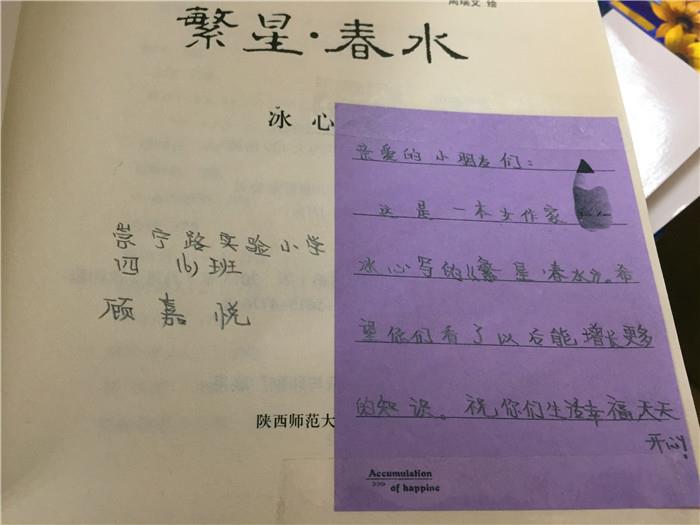 周瑞文 绘
繁星·春水
冰心
崇宁路实验小学
四(6)班
顾嘉悦
陕西师范大
亲爱的小朋友们：
这是一本女作家
冰心写的《繁星·春水》。希
望你们看了以后能增长更多
的知识。祝你们生活幸福天天
开心！
Accumulation
>>> of happine